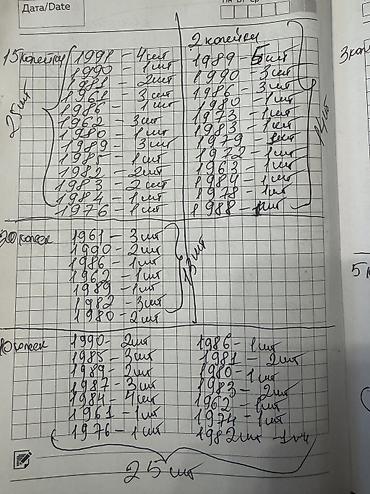 Дата/Date
15 копейки
1991 - 4шт
1990 - 1шт
1981 - 2шт
1961 - 3шт
1986 - 1шт
1962 - 3шт
1980 - 1шт
1989 - 3шт
1985 - 1шт
1982 - 2шт
1983 - 2шт
1984 - 1шт
1976 - 1шт
25 шт
2 копейки
1989 - 5шт
1990 - 3шт
1986 - 3шт
1980 - 1шт
1973 - 1шт
1983 - 1шт
1979 - 1шт
1972 - 1шт
1963 - 1шт
1984 - 1шт
1978 - 1шт
1988 - 1шт
20 копеек
1961 - 3шт
1990 - 2шт
1986 - 1шт
1962 - 1шт
1989 - 1шт
1982 - 3шт
1980 - 2шт
13 шт
10 копеек
1990 - 2шт
1985 - 3шт
1989 - 2шт
1987 - 3шт
1984 - 4шт
1961 - 1шт
1976 - 1шт
1986 - 1шт
1981 - 2шт
1980 - 1шт
1983 - 2шт
1962 - 1шт
1974 - 1шт
1982шт - 1шт
25 шт
3 коп
5